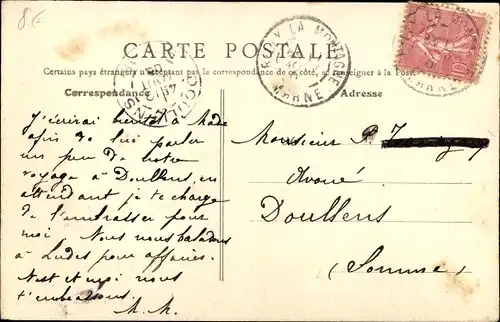 8€
CARTE POSTALE
Certains pays étrangers n'acceptant pas la correspondance de ce côté, se renseigner à la Poste
Correspondance
Adresse
J'écrirai bientôt à Made
afin de lui parler
un peu de notre
voyage à Doullens, en
attendant je te charge
de l'embrasser pour
moi Nous nous baladons
à Ludes pour affaires.
Nest et moi nous
t'embrassons.
M. M.
RILLY LA MONTAGNE
MARNE
DOULLENS
Monsieur P.
Avoué
Doullens
(Somme)
10